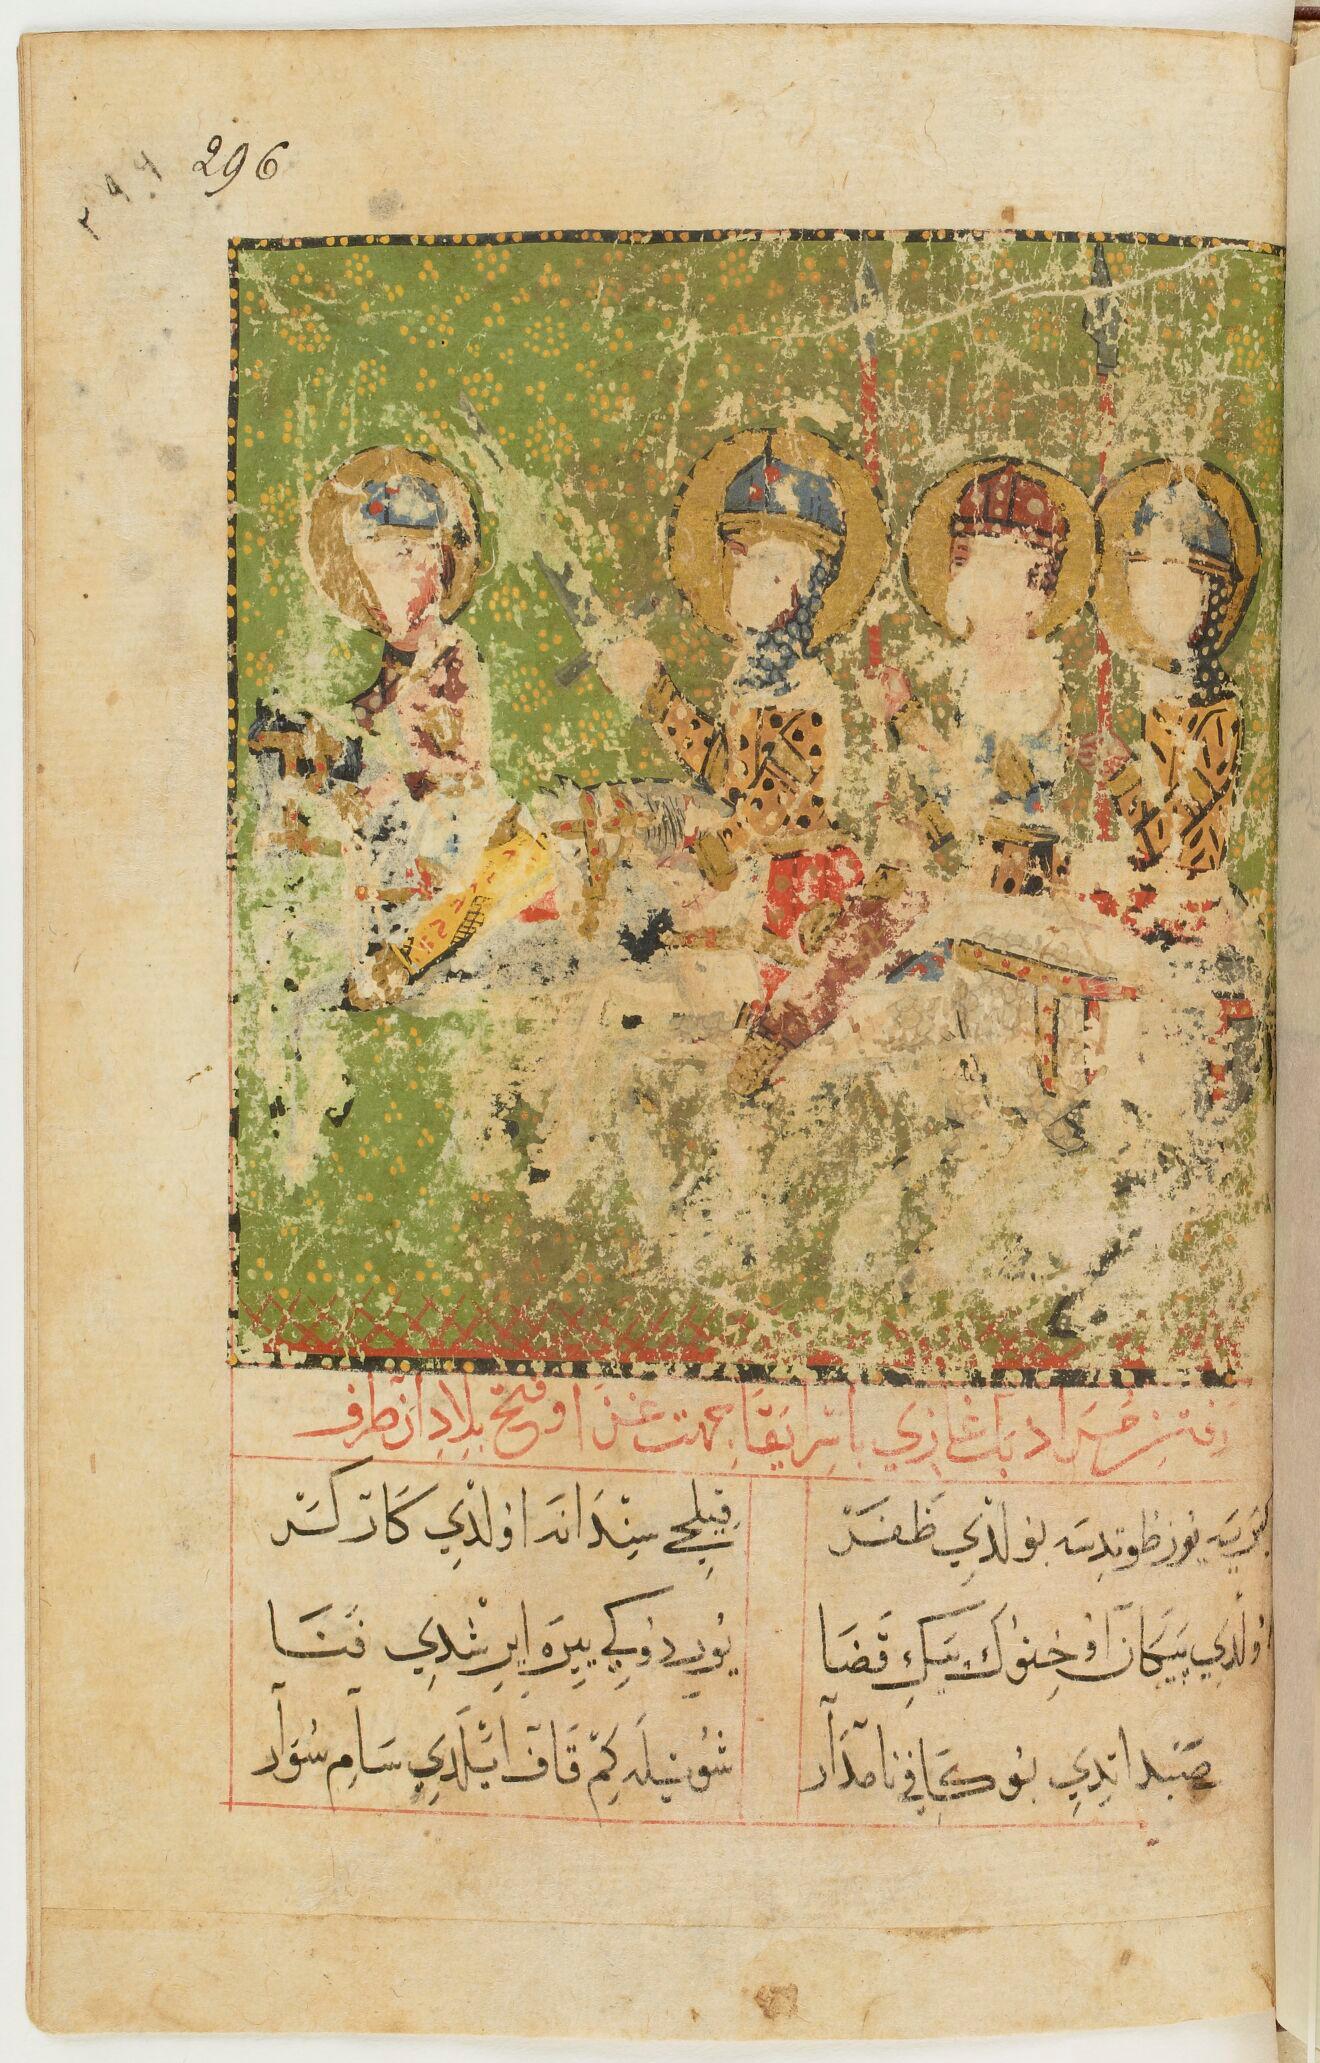 296
٢٩٦
رفتن خسرو بك غازي بانريقا بجهت غزا و فتح بلاد ان طرف
يوز طوتدسه بو لدي ظفر
قيلجي سندانه اولدي كاركر
ولدي پيكان اوخنوك پيك قضا
يوريدوكي ييره ايرشدي فنا
صيد ايتدي بو كافي نامدار
شويله كم قاف ايلدي سام سوار